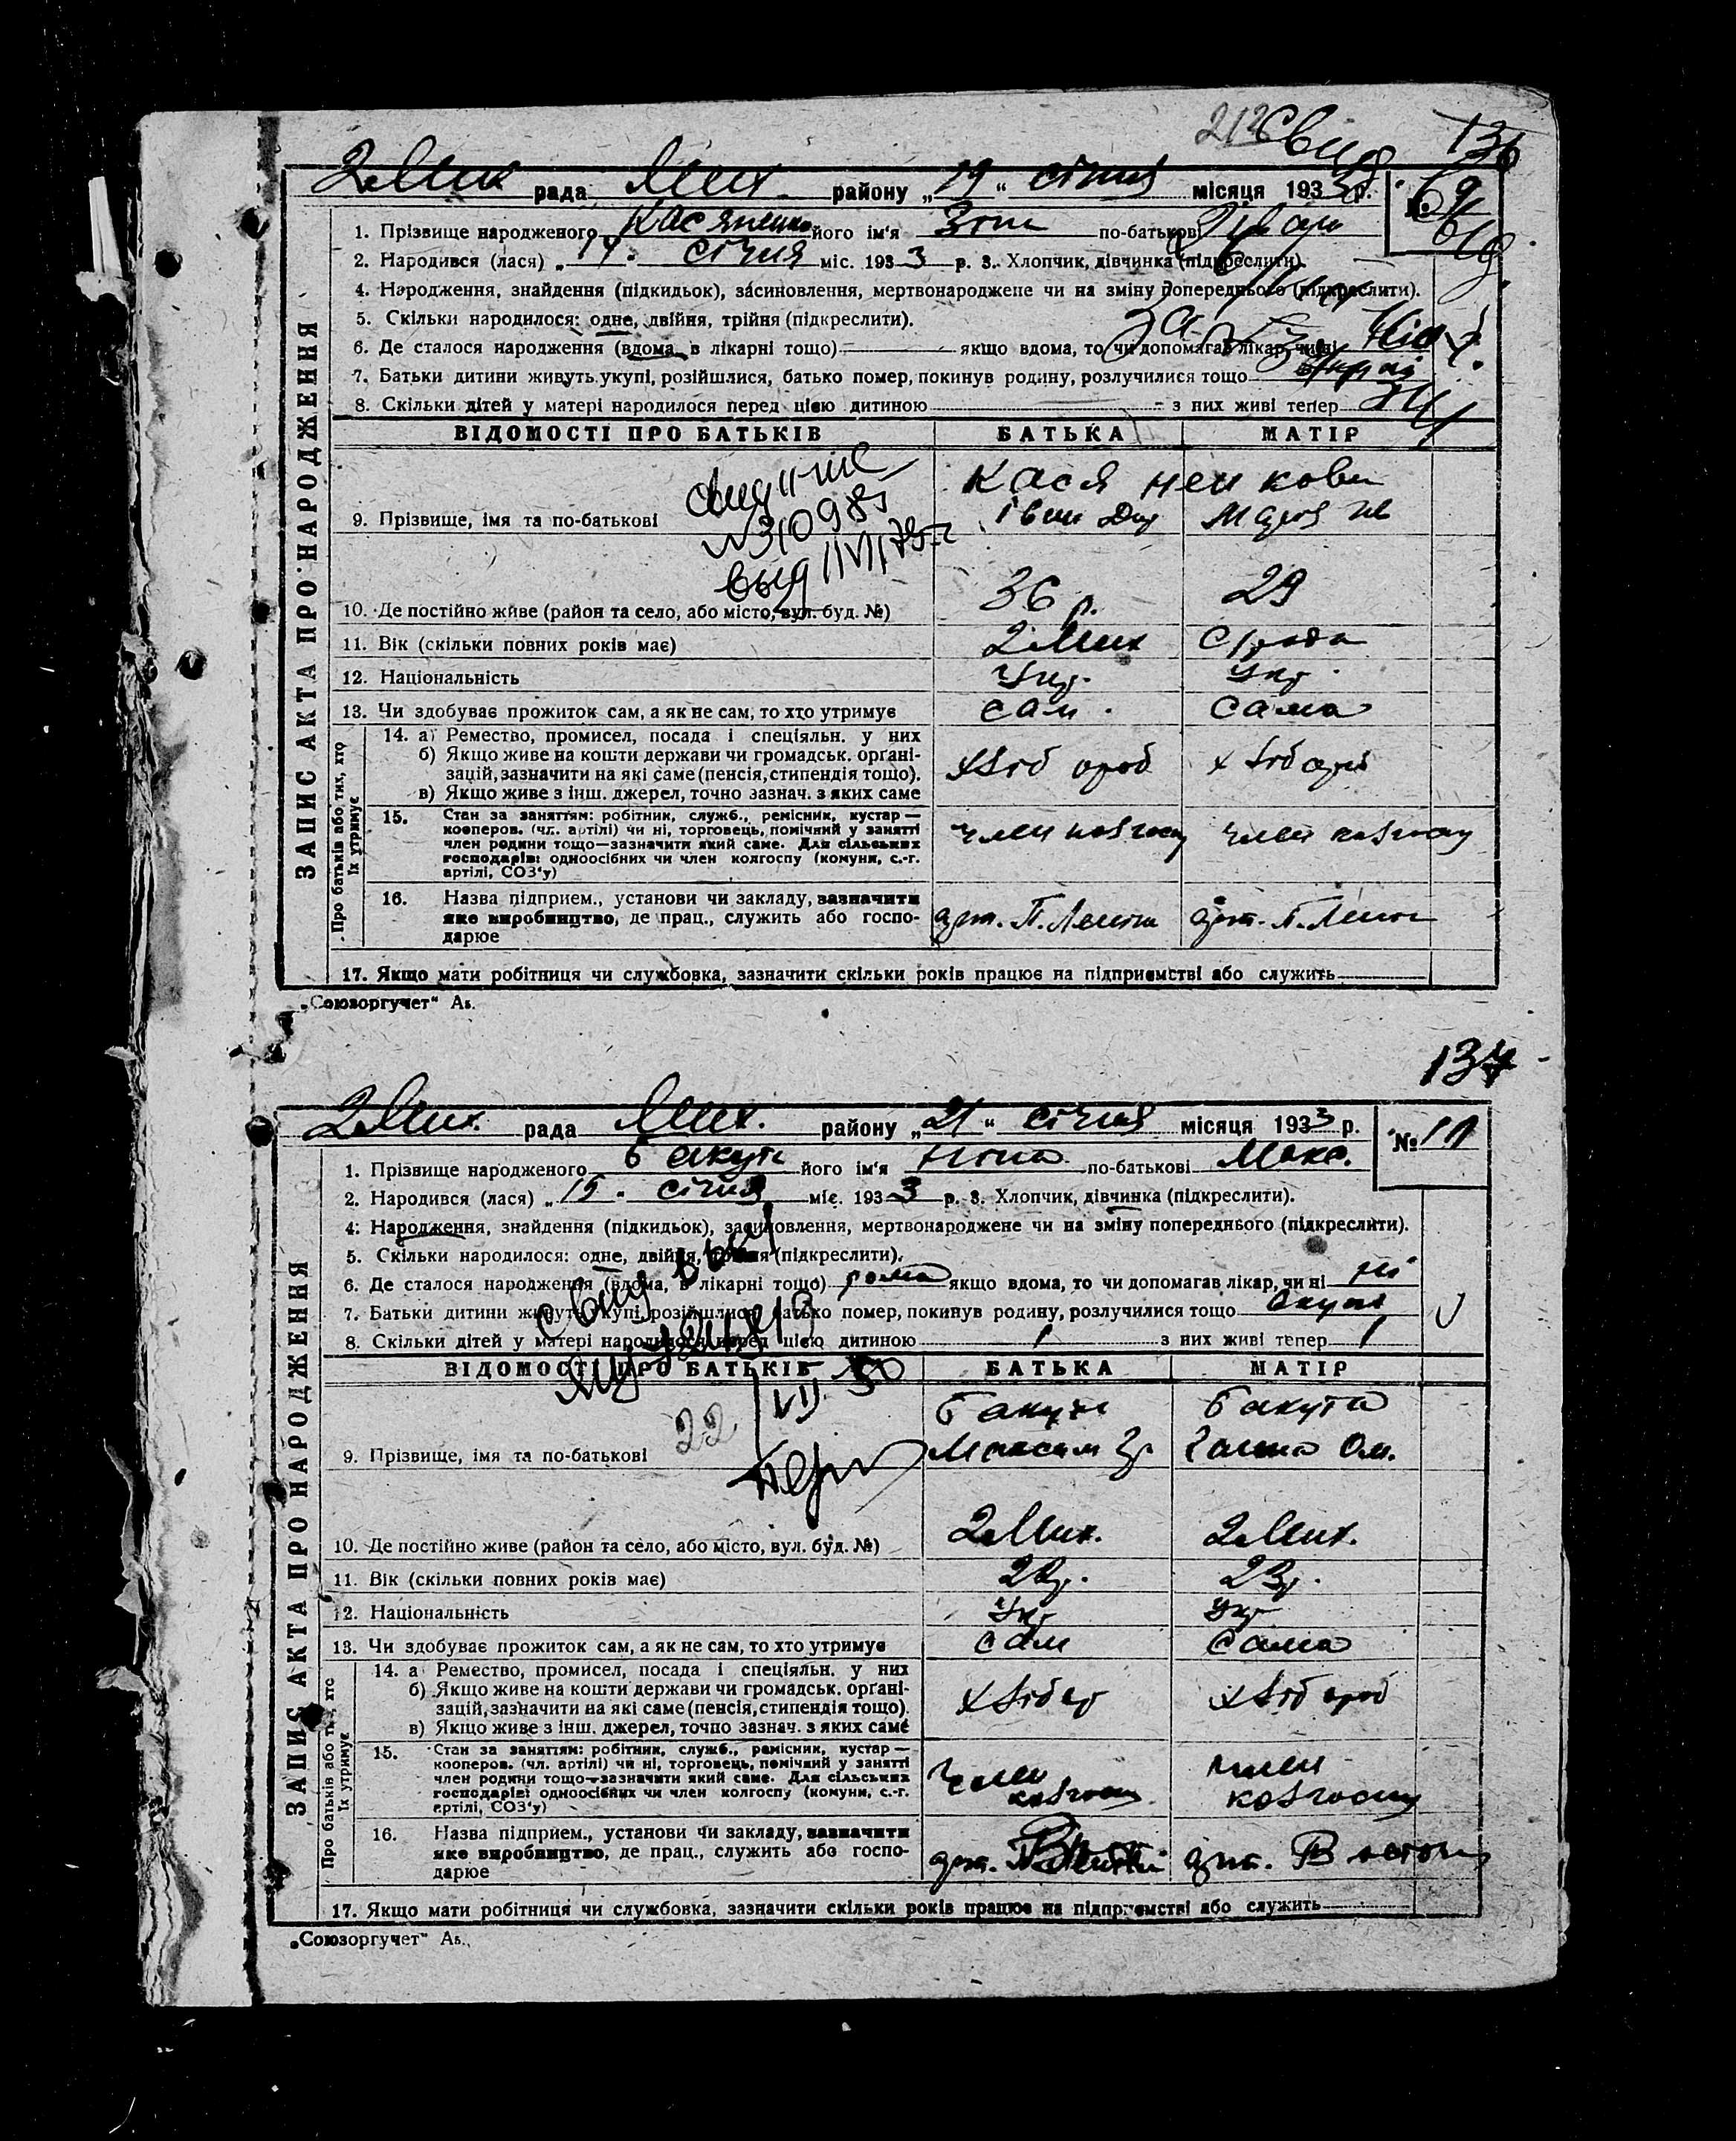 136
2 Мих рада Мих. району „19“ січня місяця 1933 р.
1. Прізвище народженого Касяненко його ім'я Зіна по-батькові Іван
2. Народився (лася) „17“ січня міс. 1933 р. 3. Хлопчик, дівчинка (підкреслити).
4. Народження, знайдення (підкидьок), засиновлення, мертвонароджене чи на зміну попереднього (підкреслити).
5. Скільки народилося: одне, двійня, трійня (підкреслити).
6. Де сталося народження (вдома, в лікарні тощо) якщо вдома, то чи допомагав лікар, чи ні
7. Батьки дитини живуть укупі, розійшлися, батько помер, покинув родину, розлучилися тощо
8. Скільки дітей у матері народилося перед цією дитиною з них живі тепер
ЗАПИС АКТА ПРО НАРОДЖЕННЯ
ВІДОМОСТІ ПРО БАТЬКІВ БАТЬКА МАТІР
Кася ненкови
9. Прізвище, імя та по-батькові
№310985
выд
36 р. 29
10. Де постійно живе (район та село, або місто, вул. буд. №)
11. Вік (скільки повних років має) 2 Мих
12. Національність Укр. Укр.
13. Чи здобуває прожиток сам, а як не сам, то хто утримує сам. сама
Про батьків або тих, хто їх утримує
14. а) Ремество, промисел, посада і спеціяльн. у них
б) Якщо живе на кошти держави чи громадськ. орґані-
зацій, зазначити на які саме (пенсія, стипендія тощо). хліб ороб хліб ороб
в) Якщо живе з інш. джерел, точно зазнач. з яких саме
15. Стан за заняттям: робітник, служб., ремісник, кустар —
кооперов. (чл. артілі) чи ні, торговець, помічний у занятті
член родини тощо—зазначити який саме. Для сільських член колгоспу член колгоспу
господарів: одноосібних чи член колгоспу (комуни, с.-г.
артілі, СОЗ'у)
16. Назва підприєм., установи чи закладу, зазначити
яке виробництво, де прац., служить або госпо- арт. П. Леніна арт. П. Ленін
дарює
17. Якщо мати робітниця чи службовка, зазначити скільки років працює на підприємстві або служить
„Союзоргучет“ Ав.
137
2 Мих. рада Мих. району „21“ січня місяця 1933 р. № 11
1. Прізвище народженого Бакута його ім'я Ніна по-батькові Макс.
2. Народився (лася) „15“ січня міс. 1933 р. 3. Хлопчик, дівчинка (підкреслити).
4. Народження, знайдення (підкидьок), засиновлення, мертвонароджене чи на зміну попереднього (підкреслити).
5. Скільки народилося: одне, двійня, трійня (підкреслити).
6. Де сталося народження (вдома, в лікарні тощо) дома якщо вдома, то чи допомагав лікар, чи ні ні
7. Батьки дитини живуть укупі, розійшлися, батько помер, покинув родину, розлучилися тощо вкупі
8. Скільки дітей у матері народилося перед цією дитиною 1 з них живі тепер 1
ЗАПИС АКТА ПРО НАРОДЖЕННЯ
ВІДОМОСТІ ПРО БАТЬКІВ БАТЬКА МАТІР
22 Бакута Бакута
9. Прізвище, імя та по-батькові Максим Гр Ганна Ом.
10. Де постійно живе (район та село, або місто, вул. буд. №) 2 Мих. 2 Мих.
11. Вік (скільки повних років має) 23р.
12. Національність Укр Укр
13. Чи здобуває прожиток сам, а як не сам, то хто утримує сам сама
Про батьків або тих, хто їх утримує
14. а Ремество, промисел, посада і спеціяльн. у них
б) Якщо живе на кошти держави чи громадськ. орґані-
зацій, зазначити на які саме (пенсія, стипендія тощо). хліб ор хліб ороб
в) Якщо живе з інш. джерел, точно зазнач. з яких саме
15. Стан за заняттям: робітник, служб., ремісник, кустар —
кооперов. (чл. артілі) чи ні, торговець, помічний у занятті член член
член родини тощо—зазначити який саме. Для сільських колгоспу колгоспу
господарів: одноосібних чи член колгоспу (комуни, с.-г.
артілі, СОЗ'у)
16. Назва підприєм., установи чи закладу, зазначити
яке виробництво, де прац., служить або госпо- арт. арт.
дарює
17. Якщо мати робітниця чи службовка, зазначити скільки років працює на підприємстві або служить
„Союзоргучет“ Ав.